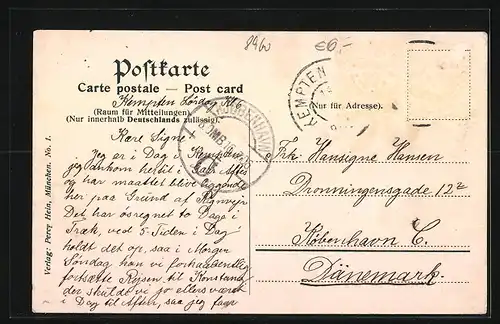 8960
€6-
Postkarte
Carte postale — Post card
Kempten Lördag Kl 6
(Raum für Mitteilungen)
(Nur innerhalb Deutschlands zulässig).
KEMPTEN
KJØBENHAVN
(Nur für Adresse).
Kære Signe
Jeg er i Dag i Kempten,
jeg ankom hertil i Gaar Aftes
og har maattet blive liggende
her paa Grund af Regnvejr.
Det har øsregnet to Dage i
Træk, ved 5 Tiden i Dag
holdt det op, saa i Morgen
Søndag kan vi forhaabentlig
fortsætte Rejsen til Konstanz
der skulde vi jo ellers været
i Dag til Aften, saa jeg faar
Frk. Hansigne Hansen
Dronningensgade 12
København C.
Dänemark.
Verlag: Percy Hein, München. No. 1.